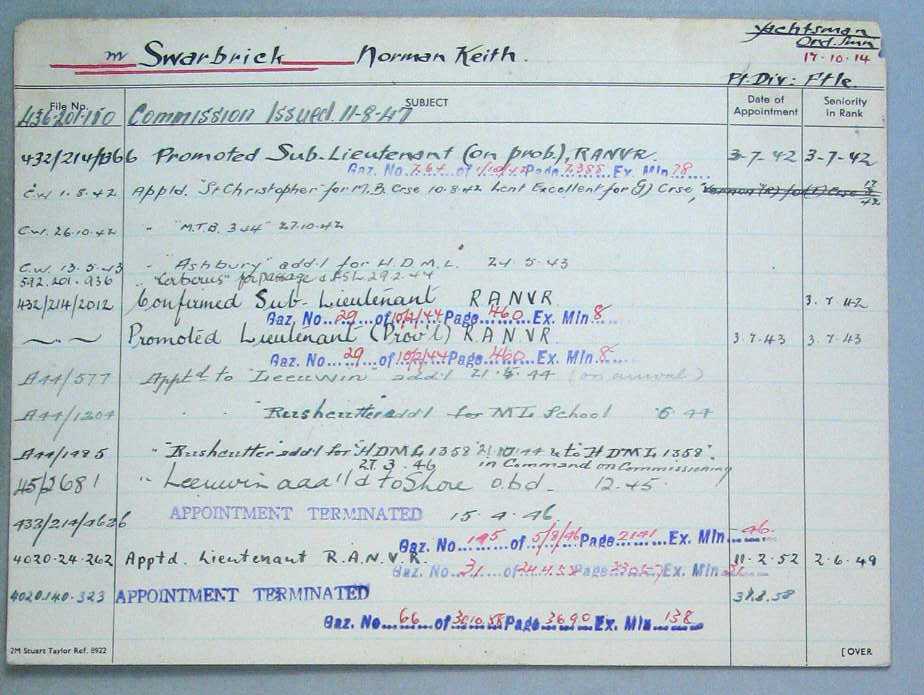 Yachtsman
m Swarbrick Norman Keith. Ord. Smn
17.10.14
Pt. Div: F'tle.
File No. SUBJECT Date of Appointment Seniority in Rank
436-201-110 Commission Issued 11-8-47
432/214/1366 Promoted Sub-Lieutenant (on prob.), RANVR. 3-7-42 3-7-42
Gaz. No. 264 of 1/10/42 Page 2388 Ex. Min 78
C.W 1.8.42 Appld. "St Christopher" for M.B. Crse 10.8.42 Lent Excellent for (g) Crse,
C.W. 26.10.42 " "M.T.B. 344" 27.10.42
C.W. 13.5.43 " Ashbury" add'l for H.D.M.L. 24.5.43
592.201.936 "Cerberus" for passage
432/214/2012 Confirmed Sub-Lieutenant RANVR 3.7.42
Gaz. No. 29 of 10/2/44 Page 460 Ex. Min 8
Promoted Lieutenant (Prov'l) RANVR 3.7.43 3.7.43
Gaz. No. 29 of 10/2/44 Page 460 Ex. Min 8
A44/577 Appt'd to Leeuwin add'l 21.5.44 (on arrival)
A44/1204 " "Rushcutter add'l for ML School 6.44
A44/1485 "Rushcutter" add'l for "HDML 1358" 21.10.44 & to "HDML 1358".
27.3.46 in Command on Commissioning
45/2681 " Leeuwin to Shore 12.45.
433/214/4626 APPOINTMENT TERMINATED 15.4.46
Gaz. No. 145 of 5/8/46 Page 2141 Ex. Min 46.
4020-24-262 Apptd. Lieutenant R.A.N.V.R. 11.2.52 2.6.49
Gaz. No. 31 of Page Ex. Min 21
4020.140.323 APPOINTMENT TERMINATED 31.8.58
Gaz. No. 66 of 30.10.58 Page 3690 Ex. Min 138
2M Stuart Taylor Ref. 8922 [OVER